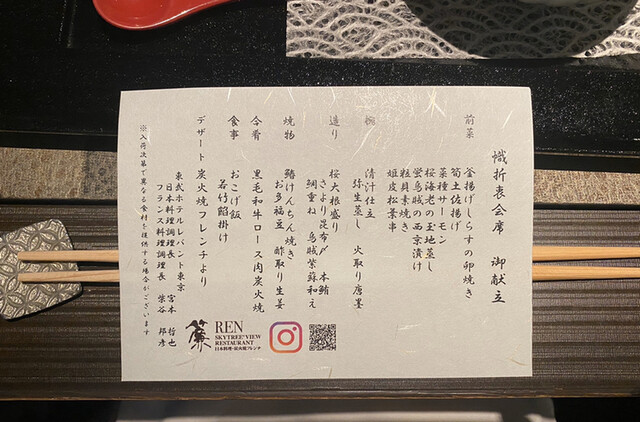 幟折表会席 御献立
前菜
釜揚げしらすの卯焼き
筍土佐揚げ
菜種サーモン
桜海老の玉地蒸し
蛍烏賊の西京漬け
粒貝素焼き
姫皮松葉串
椀
清汁仕立
弥生蒸し 火取り唐墨
造り
桜大根盛り
さより昆布〆 本鮪
鯛重ね 烏賊紫蘇和え
焼物
鰆けんちん焼き
お多福豆 酢取り生姜
合肴
黒毛和牛ロース肉炭火焼
食事
おこげ飯
若竹餡掛け
デザート 炭火焼フレンチより
東武ホテルレバント東京
日本料理調理長 宮本 哲也
フランス料理調理長 柴谷 邦彦
※入荷次第で異なる食材を提供する場合がございます
簾
REN
SKYTREE® VIEW
RESTAURANT
日本料理・炭火焼フレンチ